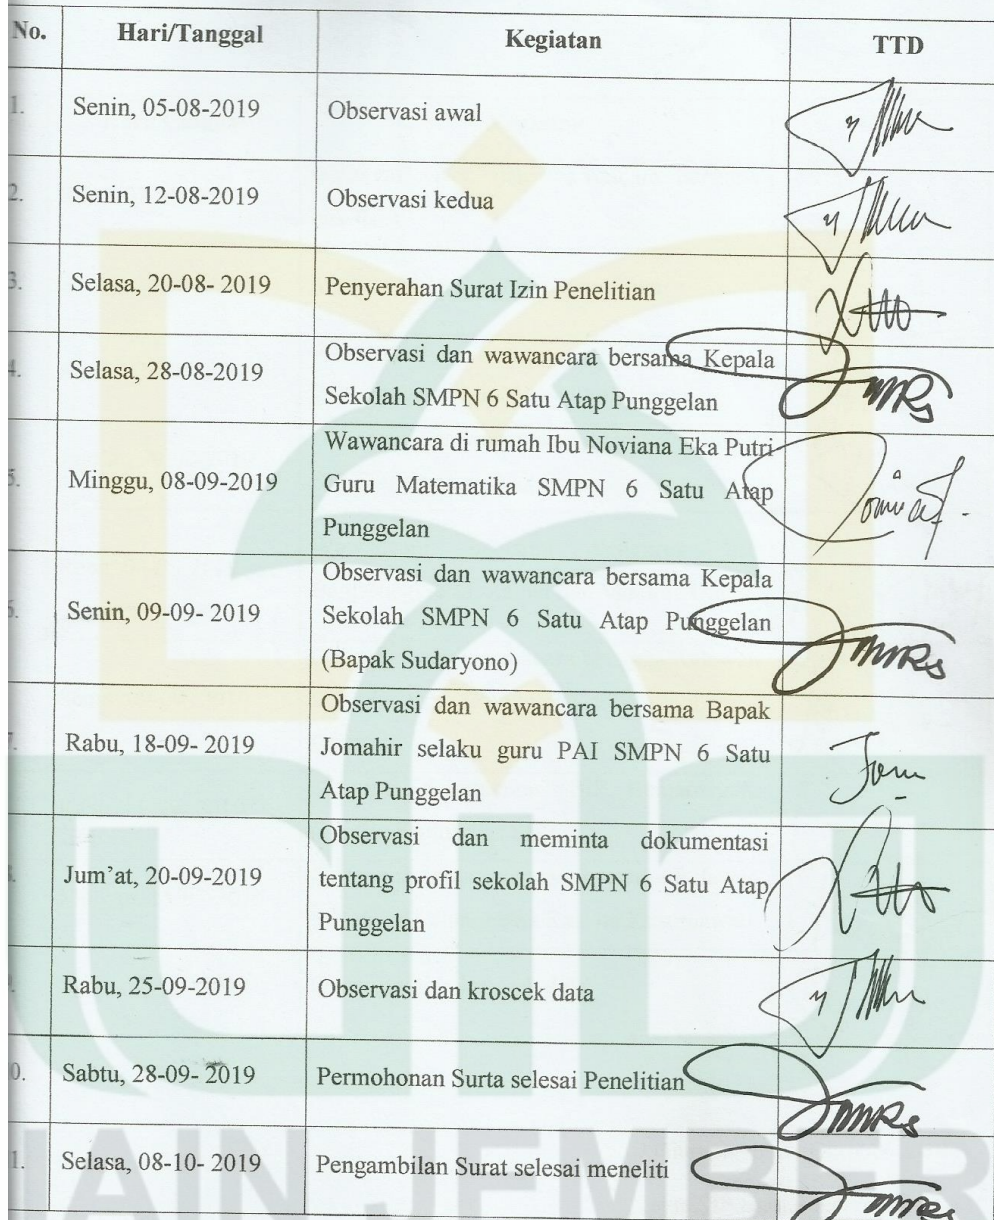 No. Hari/Tanggal Kegiatan TTD
1. Senin, 05-08-2019 Observasi awal
2. Senin, 12-08-2019 Observasi kedua
3. Selasa, 20-08- 2019 Penyerahan Surat Izin Penelitian
4. Selasa, 28-08-2019 Observasi dan wawancara bersama Kepala
Sekolah SMPN 6 Satu Atap Punggelan
5. Minggu, 08-09-2019 Wawancara di rumah Ibu Noviana Eka Putri
Guru Matematika SMPN 6 Satu Atap
Punggelan
Senin, 09-09- 2019 Observasi dan wawancara bersama Kepala
Sekolah SMPN 6 Satu Atap Punggelan
(Bapak Sudaryono)
Rabu, 18-09- 2019 Observasi dan wawancara bersama Bapak
Jomahir selaku guru PAI SMPN 6 Satu
Atap Punggelan
Jum’at, 20-09-2019 Observasi dan meminta dokumentasi
tentang profil sekolah SMPN 6 Satu Atap
Punggelan
Rabu, 25-09-2019 Observasi dan kroscek data
0. Sabtu, 28-09- 2019 Permohonan Surta selesai Penelitian
1. Selasa, 08-10- 2019 Pengambilan Surat selesai meneliti
IAIN JEMBER